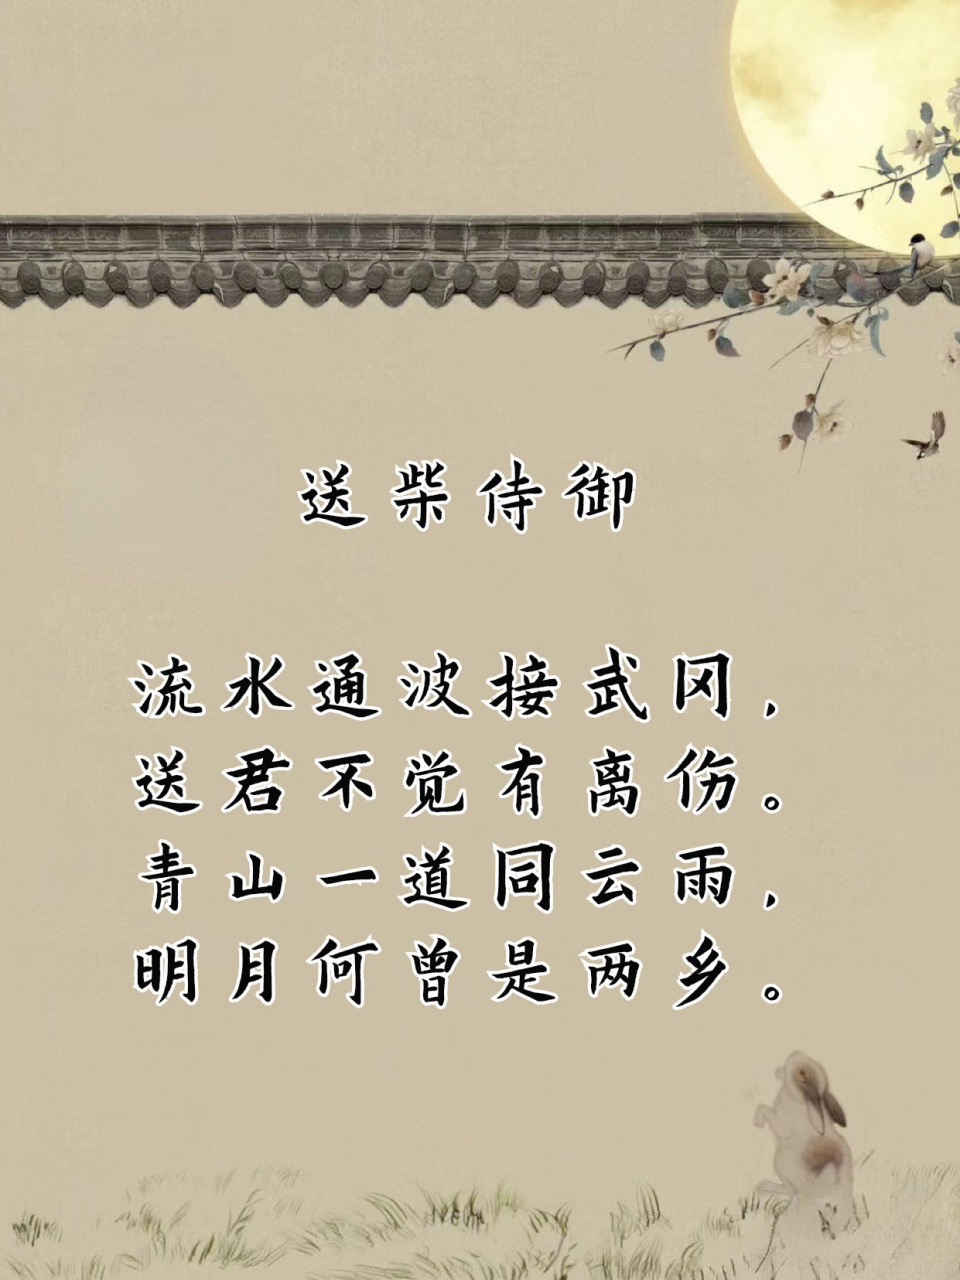 送柴侍御
流水通波接武冈，
送君不觉有离伤。
青山一道同云雨，
明月何曾是两乡。